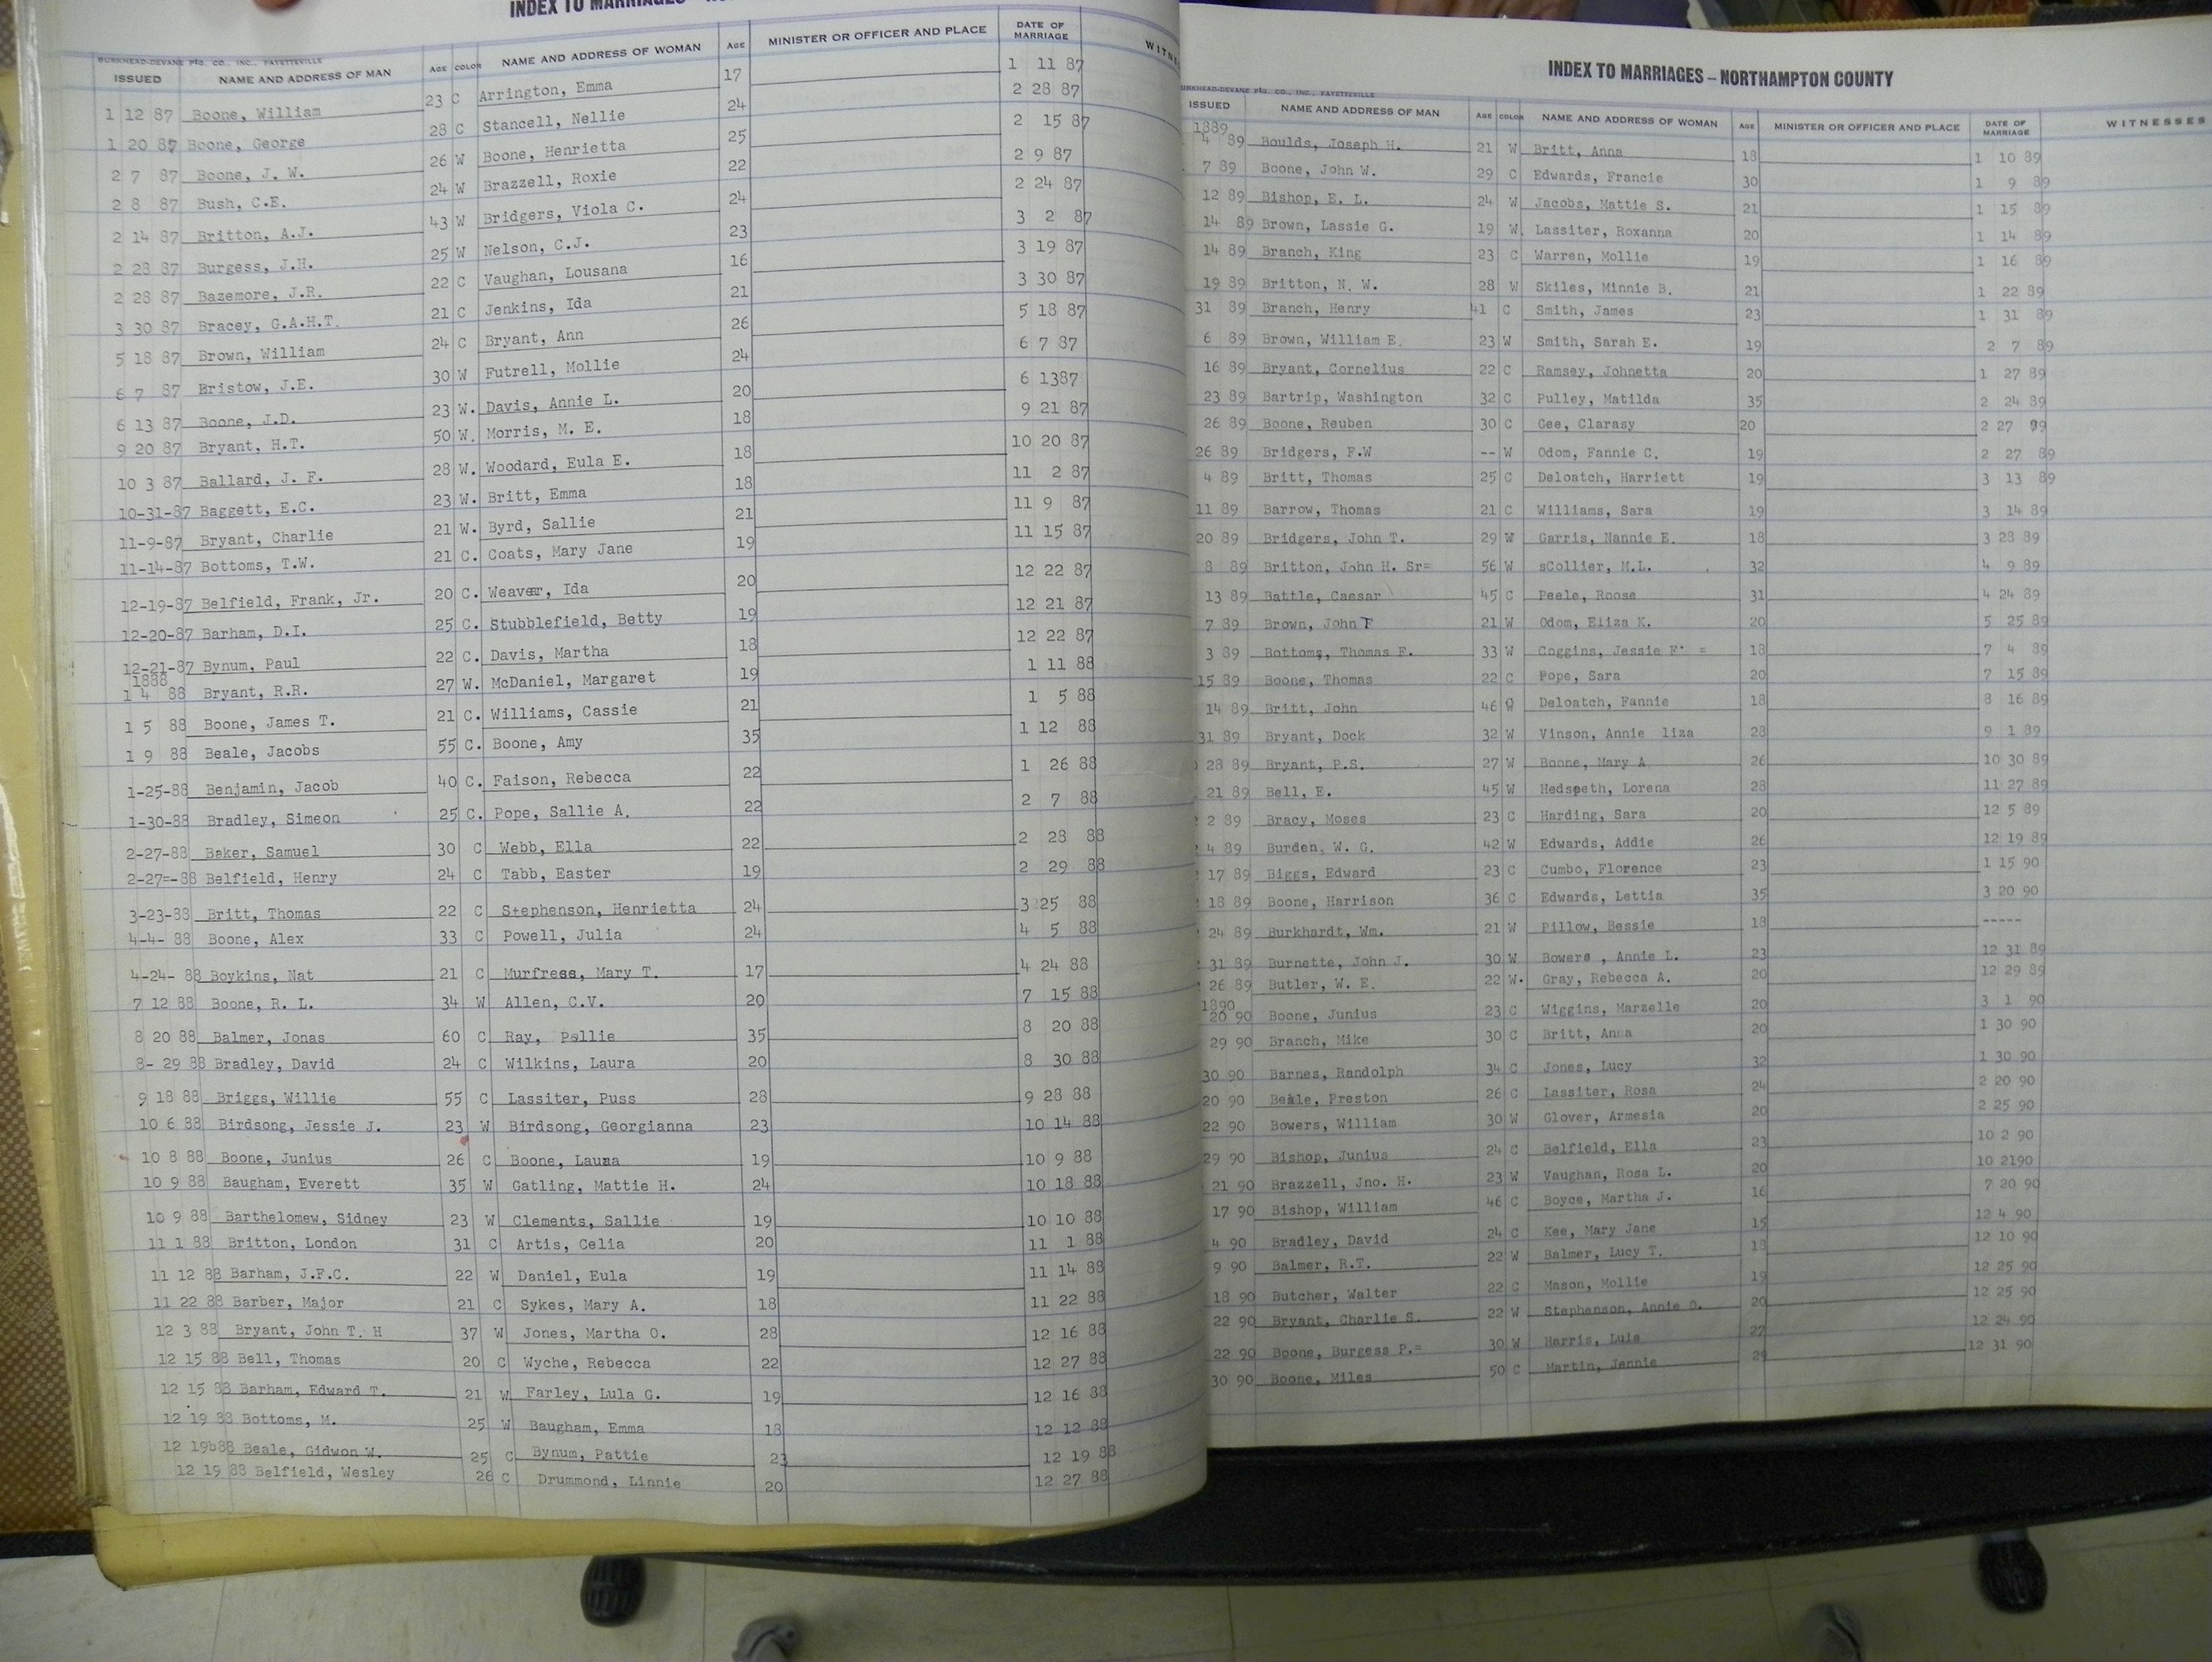 INDEX TO MARRIAGES
BURKHEAD-DEVANE PTG. CO., INC., FAYETTEVILLE
ISSUED NAME AND ADDRESS OF MAN AGE COLOR NAME AND ADDRESS OF WOMAN AGE MINISTER OR OFFICER AND PLACE DATE OF MARRIAGE
1 12 87 Boone, William 23 C Arrington, Emma 17 1 11 87
1 20 87 Boone, George 28 C Stancell, Nellie 24 2 28 87
2 7 87 Boone, J. W. 26 W Boone, Henrietta 25 2 15 87
2 8 87 Bush, C.E. 24 W Brazzell, Roxie 22 2 9 87
2 14 87 Britton, A.J. 43 W Bridgers, Viola C. 24 2 24 87
2 28 87 Burgess, J.H. 25 W Nelson, C.J. 23 3 2 87
2 28 87 Bazemore, J.R. 22 C Vaughan, Lousana 16 3 19 87
3 30 87 Bracey, G.A.H.T. 21 C Jenkins, Ida 21 3 30 87
5 18 87 Brown, William 24 C Bryant, Ann 26 5 18 87
6 7 87 Bristow, J.E. 30 W Futrell, Mollie 24 6 7 87
6 13 87 Boone, J.D. 23 W. Davis, Annie L. 20 6 1387
9 20 87 Bryant, H.T. 50 W. Morris, M. E. 18 9 21 87
10 3 87 Ballard, J. F. 28 W. Woodard, Eula E. 18 10 20 87
10-31-87 Baggett, E.C. 23 W. Britt, Emma 18 11 2 87
11-9-87 Bryant, Charlie 21 W. Byrd, Sallie 21 11 9 87
11-14-87 Bottoms, T.W. 21 C. Coats, Mary Jane 19 11 15 87
12-19-87 Belfield, Frank, Jr. 20 C. Weaver, Ida 20 12 22 87
12-20-87 Barham, D.I. 25 C. Stubblefield, Betty 19 12 21 87
12-21-87 Bynum, Paul 22 C. Davis, Martha 18 12 22 87
1888
1 4 88 Bryant, R.R. 27 W. McDaniel, Margaret 19 1 11 88
1 5 88 Boone, James T. 21 C. Williams, Cassie 21 1 5 88
1 9 88 Beale, Jacobs 55 C. Boone, Amy 35 1 12 88
1-25-88 Benjamin, Jacob 40 C. Faison, Rebecca 22 1 26 88
1-30-88 Bradley, Simeon 25 C. Pope, Sallie A. 22 2 7 88
2-27-88 Baker, Samuel 30 C Webb, Ella 22 2 28 88
2-27=-88 Belfield, Henry 24 C Tabb, Easter 19 2 29 88
3-23-88 Britt, Thomas 22 C Stephenson, Henrietta 24 3 25 88
4-4- 88 Boone, Alex 33 C Powell, Julia 24 4 5 88
4-24- 88 Boykins, Nat 21 C Murfress, Mary T. 17 4 24 88
7 12 88 Boone, R. L. 34 W Allen, C.V. 20 7 15 88
8 20 88 Balmer, Jonas 60 C Ray, Pellie 35 8 20 88
8- 29 88 Bradley, David 24 C Wilkins, Laura 20 8 30 88
9 18 88 Briggs, Willie 55 C Lassiter, Puss 28 9 28 88
10 6 88 Birdsong, Jessie J. 23 W Birdsong, Georgianna 23 10 14 88
10 8 88 Boone, Junius 26 C Boone, Launa 19 10 9 88
10 9 88 Baugham, Everett 35 W Gatling, Mattie H. 24 10 18 88
10 9 88 Barthelomew, Sidney 23 W Clements, Sallie 19 10 10 88
11 1 88 Britton, London 31 C Artis, Celia 20 11 1 88
11 12 88 Barham, J.F.C. 22 W Daniel, Eula 19 11 14 88
11 22 88 Barber, Major 21 C Sykes, Mary A. 18 11 22 88
12 3 88 Bryant, John T. H 37 W Jones, Martha O. 28 12 16 88
12 15 88 Bell, Thomas 20 C Wyche, Rebecca 22 12 27 88
12 15 88 Barham, Edward T. 21 W Farley, Lula G. 19 12 16 88
12 19 88 Bottoms, M. 25 W Baugham, Emma 18 12 12 88
12 19b88 Beale, Gidwon W. 25 C Bynum, Pattie 23 12 19 88
12 19 88 Belfield, Wesley 26 C Drummond, Linnie 20 12 27 88
INDEX TO MARRIAGES – NORTHAMPTON COUNTY
BURKHEAD-DEVANE PTG. CO., INC., FAYETTEVILLE
ISSUED NAME AND ADDRESS OF MAN AGE COLOR NAME AND ADDRESS OF WOMAN AGE MINISTER OR OFFICER AND PLACE DATE OF MARRIAGE WITNESSES
1889
4 89 Boulds, Joseph H. 21 W Britt, Anna 18 1 10 89
7 89 Boone, John W. 29 C Edwards, Francie 30 1 9 89
12 89 Bishop, E. L. 24 W Jacobs, Mattie S. 21 1 15 89
14 89 Brown, Lassie G. 19 W. Lassiter, Roxanna 20 1 14 89
14 89 Branch, King 23 C Warren, Mollie 19 1 16 89
19 89 Britton, N. W. 28 W Skiles, Minnie B. 21 1 22 89
31 89 Branch, Henry 41 C Smith, James 23 1 31 89
6 89 Brown, William E. 23 W Smith, Sarah E. 19 2 7 89
16 89 Bryant, Cornelius 22 C Ramsey, Johnetta 20 1 27 89
23 89 Bartrip, Washington 32 C Pulley, Matilda 35 2 24 89
26 89 Boone, Reuben 30 C Gee, Clarasy 20 2 27 89
26 89 Bridgers, F.W -- W Odom, Fannie C. 19 2 27 89
4 89 Britt, Thomas 25 C Deloatch, Harriett 19 3 13 89
11 89 Barrow, Thomas 21 C Williams, Sara 19 3 14 89
20 89 Bridgers, John T. 29 W Garris, Nannie E. 18 3 28 89
8 89 Britton, John H. Sr= 56 W sCollier, M.L. 32 4 9 89
13 89 Battle, Caesar 45 C Peele, Roose 31 4 24 89
7 89 Brown, John F 21 W Odom, Eliza K. 20 5 25 89
3 89 Bottoms, Thomas F. 33 W Coggins, Jessie F = 18 7 4 89
15 89 Boone, Thomas 22 C Pope, Sara 20 7 15 89
14 89 Britt, John 46 Deloatch, Fannie 18 8 16 89
31 89 Bryant, Dock 32 W Vinson, Annie liza 28 9 1 89
28 89 Bryant, P.S. 27 W Boone, Mary A 26 10 30 89
21 89 Bell, E. 45 W Hedspeth, Lorena 28 11 27 89
2 89 Bracy, Moses 23 C Harding, Sara 20 12 5 89
4 89 Burden, W. G. 42 W Edwards, Addie 26 12 19 89
17 89 Biggs, Edward 23 C Cumbo, Florence 23 1 15 90
18 89 Boone, Harrison 36 C Edwards, Lettia 35 3 20 90
24 89 Burkhardt, Wm. 21 W Pillow, Bessie 18 -----
31 89 Burnette, John J. 30 W Bowers , Annie L. 23 12 31 89
26 89 Butler, W. E. 22 W. Gray, Rebecca A. 20 12 29 89
1890
20 90 Boone, Junius 23 C Wiggins, Marzelle 20 3 1 90
29 90 Branch, Mike 30 C Britt, Anna 20 1 30 90
30 90 Barnes, Randolph 34 C Jones, Lucy 32 1 30 90
20 90 Beale, Preston 26 C Lassiter, Rosa 24 2 20 90
22 90 Bowers, William 30 W Glover, Armesia 20 2 25 90
29 90 Bishop, Junius 24 C Belfield, Ella 23 10 2 90
21 90 Brazzell, Jno. H. 23 W Vaughan, Rosa L. 20 10 2190
17 90 Bishop, William 46 C Boyce, Martha J. 16 7 20 90
4 90 Bradley, David 24 C Kee, Mary Jane 15 12 4 90
9 90 Balmer, R.T. 22 W Balmer, Lucy T. 18 12 10 90
18 90 Butcher, Walter 22 C Mason, Mollie 19 12 25 90
22 90 Bryant, Charlie S. 22 W Stephenson, Annie O. 20 12 25 90
22 90 Boone, Burgess P.= 30 W Harris, Lula 27 12 24 90
30 90 Boone, Miles 50 C Martin, Jennie 29 12 31 90